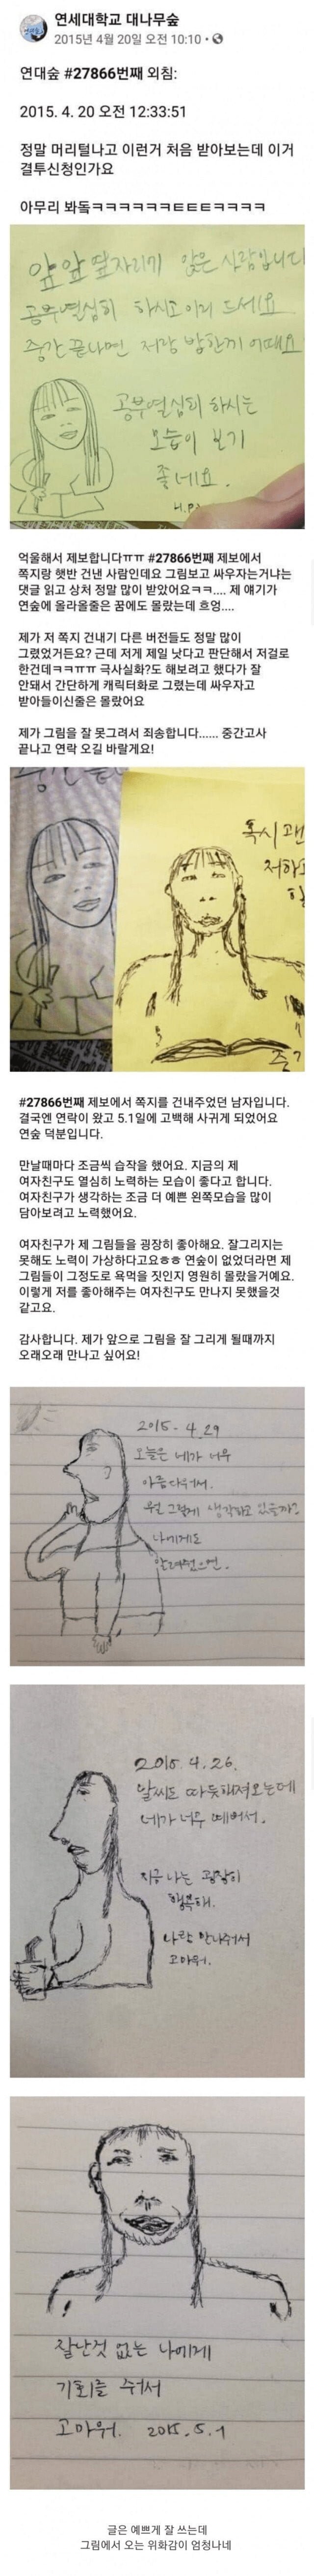 연세대학교 대나무숲
2015년 4월 20일 오전 10:10 ·
연대숲 #27866번째 외침:
2015. 4. 20 오전 12:33:51
정말 머리털나고 이런거 처음 받아보는데 이거
결투신청인가요
아무리 봐돜ㅋㅋㅋㅋㅋㅋㅌㅌㅌㅋㅋㅋㅋ
앞앞 옆자리에 앉은 사람입니다
공부열심히 하시고 이거 드세요
중간 끝나면 저랑 밥한끼 어때요
공부열심히 하시는
모습이 보기
좋네요.
억울해서 제보합니다ㅠㅠ #27866번째 제보에서
쪽지랑 햇반 건낸 사람인데요 그림보고 싸우자는거냐는
댓글 읽고 상처 정말 많이 받았어요ㅋㅋ.... 제 얘기가
연숲에 올라올줄은 꿈에도 몰랐는데 흐엉....
제가 저 쪽지 건내기 다른 버전들도 정말 많이
그렸었거든요? 근데 저게 제일 낫다고 판단해서 저걸로
한건데ㅋㅋㅠㅠ 극사실화?도 해보려고 했다가 잘
안돼서 간단하게 캐릭터화로 그렸는데 싸우자고
받아들이신줄은 몰랐어요
제가 그림을 잘 못그려서 죄송합니다...... 중간고사
끝나고 연락 오길 바랄게요!
혹시 괜
저하고
#27866번째 제보에서 쪽지를 건내주었던 남자입니다.
결국엔 연락이 왔고 5.1일에 고백해 사귀게 되었어요
연숲 덕분입니다.
만날때마다 조금씩 습작을 했어요. 지금의 제
여자친구도 열심히 노력하는 모습이 좋다고 합니다.
여자친구가 생각하는 조금 더 예쁜 왼쪽모습을 많이
담아보려고 노력했어요.
여자친구가 제 그림들을 굉장히 좋아해요. 잘그리지는
못해도 노력이 가상하다고요ㅎㅎ 연숲이 없었더라면 제
그림들이 그정도로 욕먹을 짓인지 영원히 몰랐을거예요.
이렇게 저를 좋아해주는 여자친구도 만나지 못했을것
같고요.
감사합니다. 제가 앞으로 그림을 잘 그리게 될때까지
오래오래 만나고 싶어요!
2015. 4. 29
오늘은 네가 너무
아름다워서.
뭘 그렇게 생각하고 있을까?
나에게도
알려줬으면.
2015. 4. 26.
날씨도 따뜻해져오는데
네가 너무 예뻐서.
지금 나는 굉장히
행복해.
나랑 만나줘서
고마워.
잘난것 없는 나에게
기회를 줘서
고마워. 2015. 5. 1
글은 예쁘게 잘 쓰는데
그림에서 오는 위화감이 엄청나네